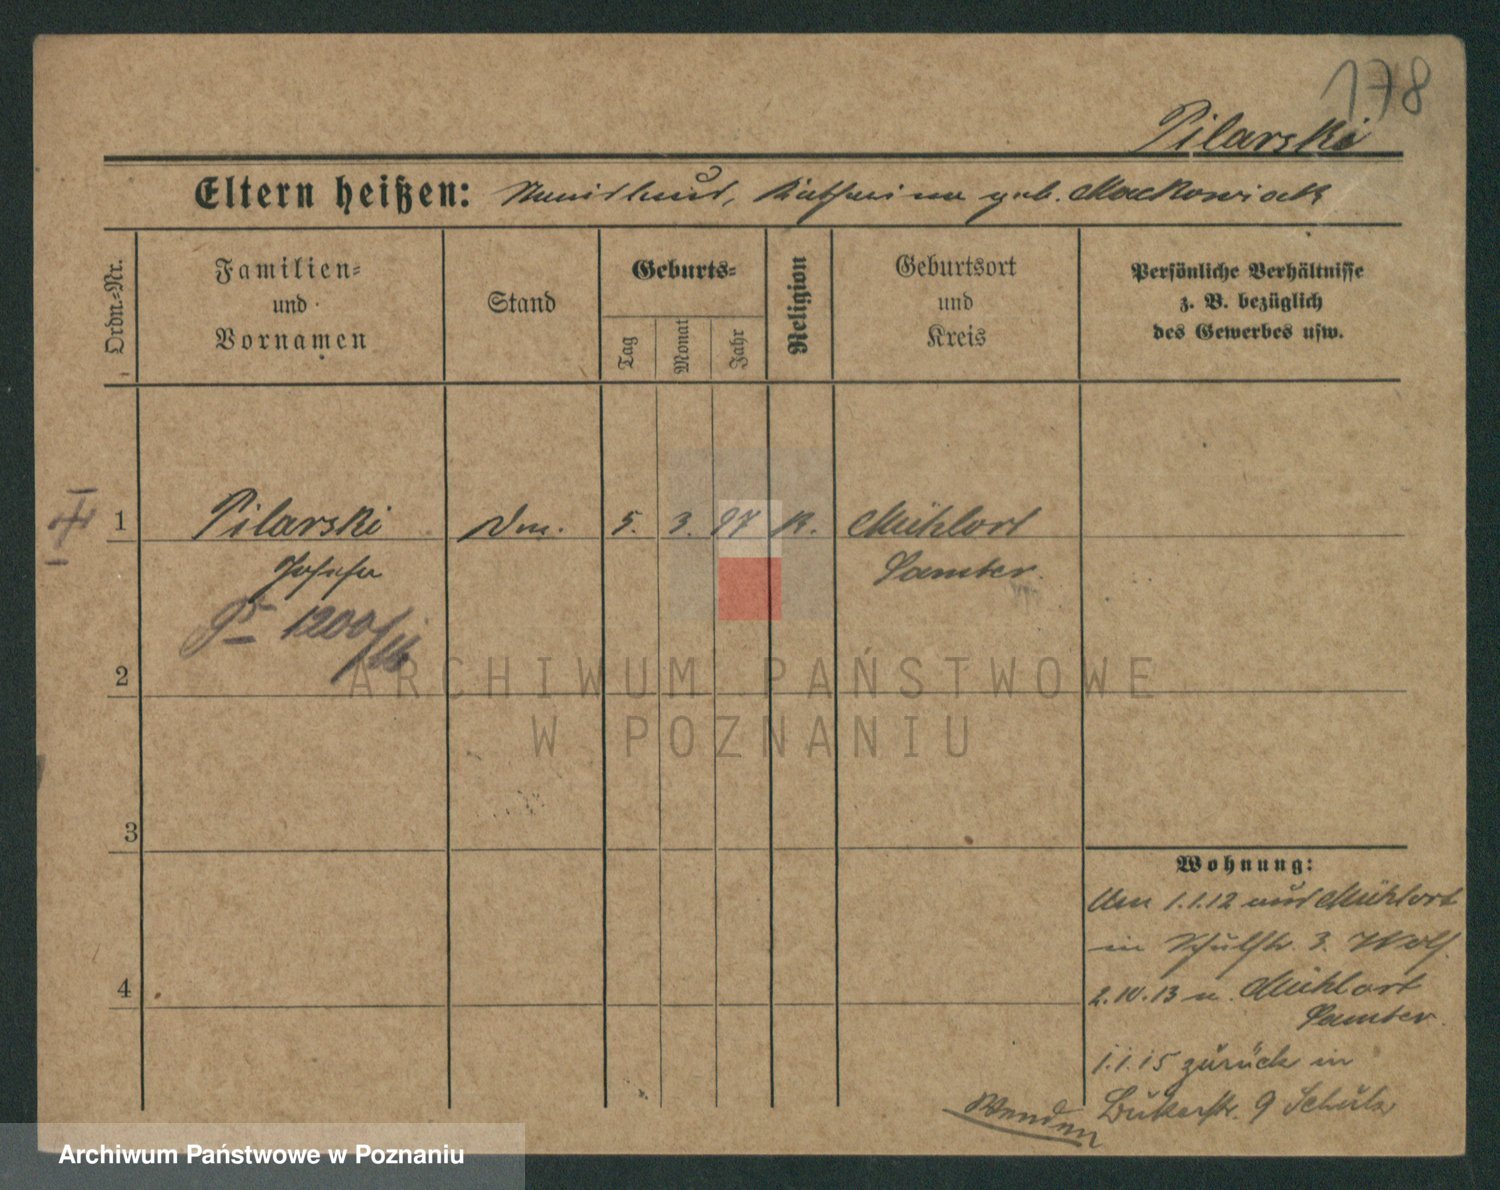 178
Pilarski
Eltern heißen: Katharina geb. Maćkowiak
Ordn.-Nr.
Familien-
und
Vornamen
Stand
Geburts-
Tag
Monat
Jahr
Religion
Geburtsort
und
Kreis
Persönliche Verhältnisse
z. B. bezüglich
des Gewerbes usw.
1 Pilarski 5. 3. 97 K. Mühlort
Josefa Samter.
1200/16
2
3
4
ARCHIWUM PAŃSTWOWE
W POZNANIU
Wohnung:
1.1.12 aus Mühlort
in Schulstr. 3.
2.10.13 n. Mühlort
Samter.
1.1.15 zurück in
Bukerstr. 9 Schulz
Wenden
Archiwum Państwowe w Poznaniu